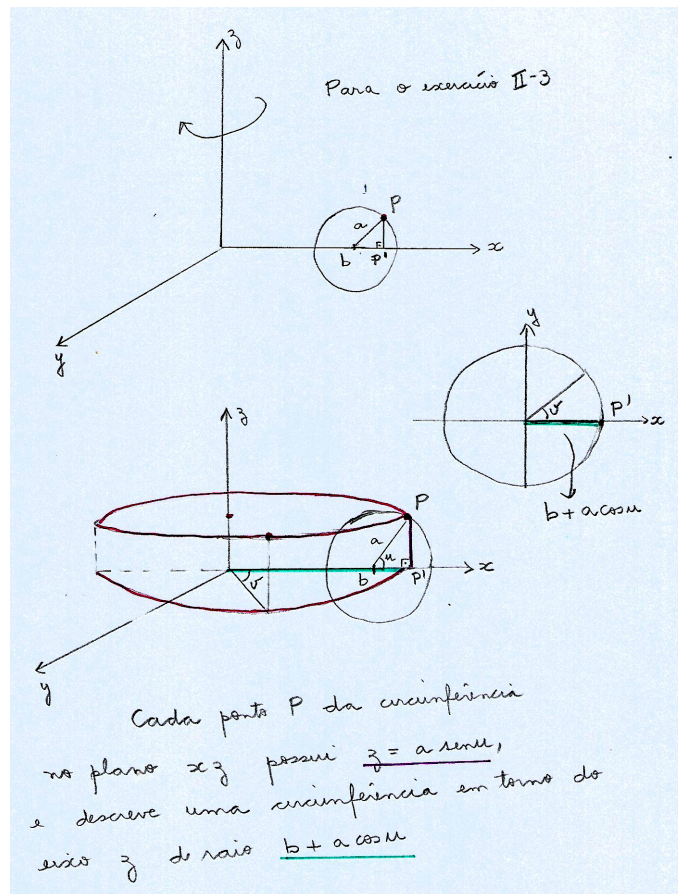 z
Para o exercício II-3
P
a
b
P'
x
y
y
v
P'
x
b + a cos u
z
P
a
u
v
b
P'
x
y
Cada ponto P da circunferência
no plano xz possui z = a sen u,
e descreve uma circunferência em torno do
eixo z de raio b + a cos u